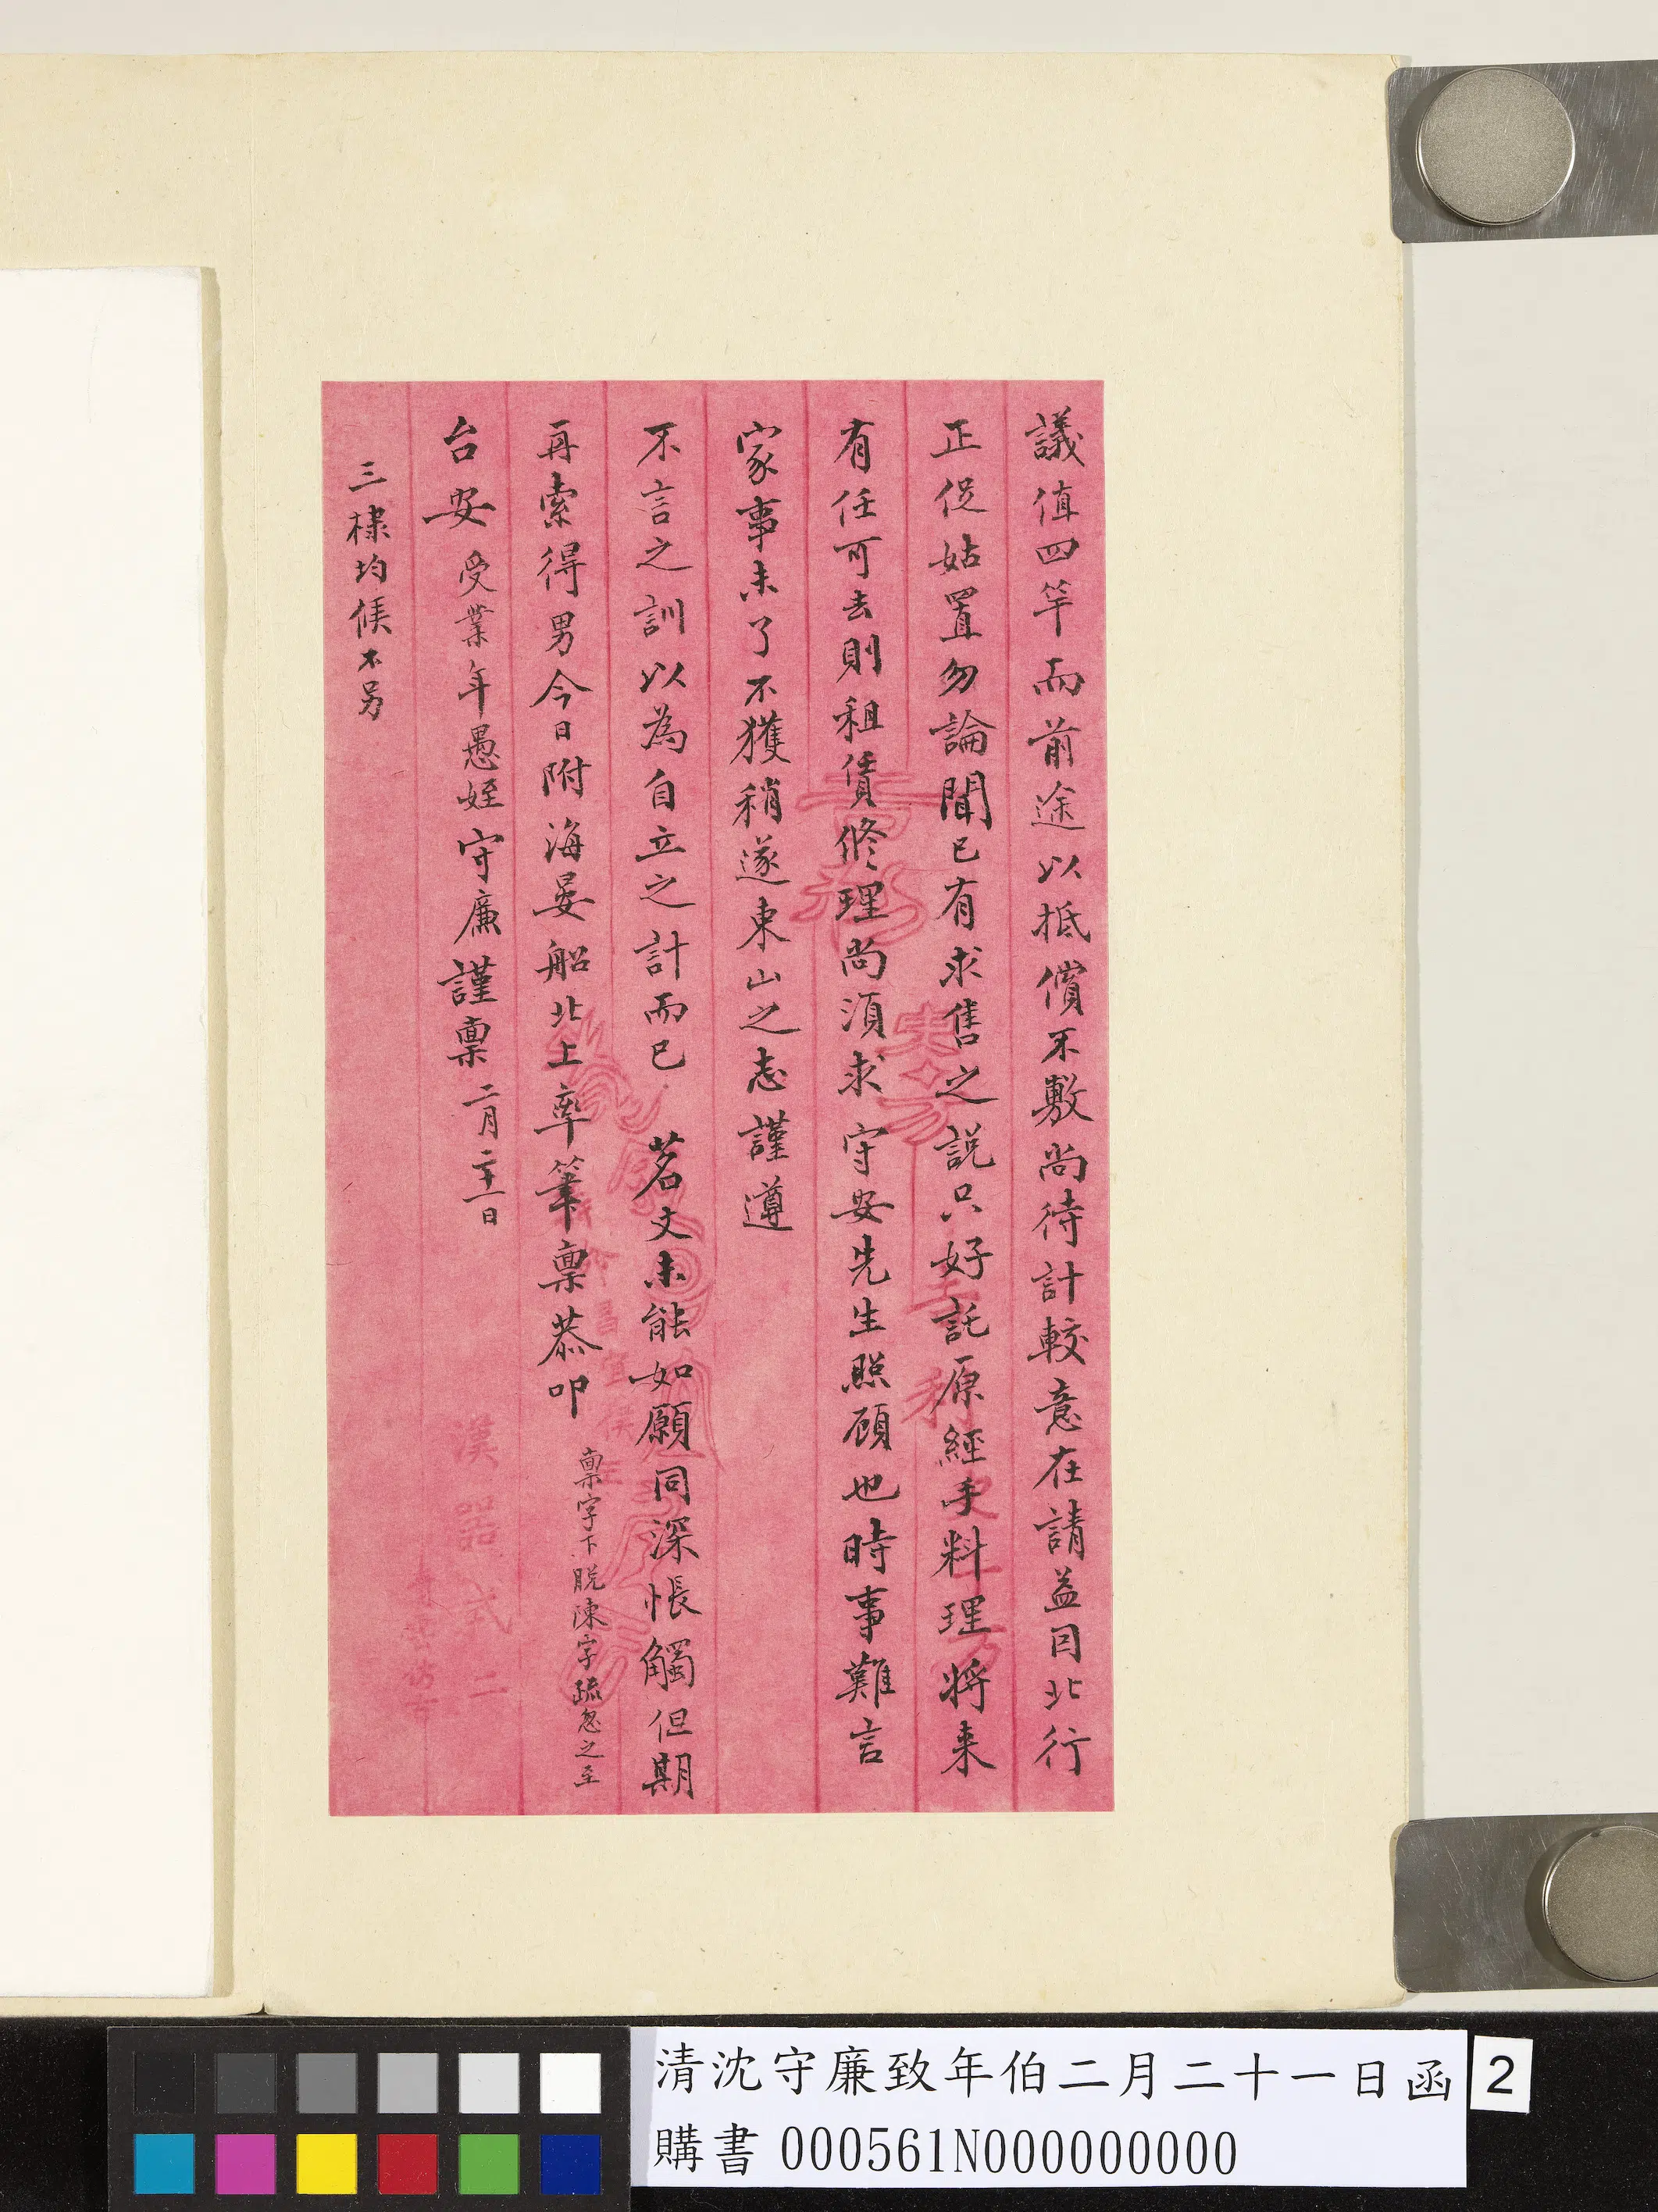 議值四竿而前途以抵償不敷尚待計較意在請益因北行
正促姑置勿論聞已有求售之說只好託原經手料理將来
有任可去則租賃修理尚須求 守安先生照顧也時事難言
家事未了不獲稍遂東山之志謹遵
不言之訓以為自立之計而已 茗文未能如願同深悵觸但期
再索得男今日附海晏船北上率筆稟恭叩
稟字下脫陳字疏忽之至
台安 受業年愚姪守廉謹稟 二月二十一日
三棣均候不另
漢器式二
清沈守廉致年伯二月二十一日函 2
購書 000561N000000000